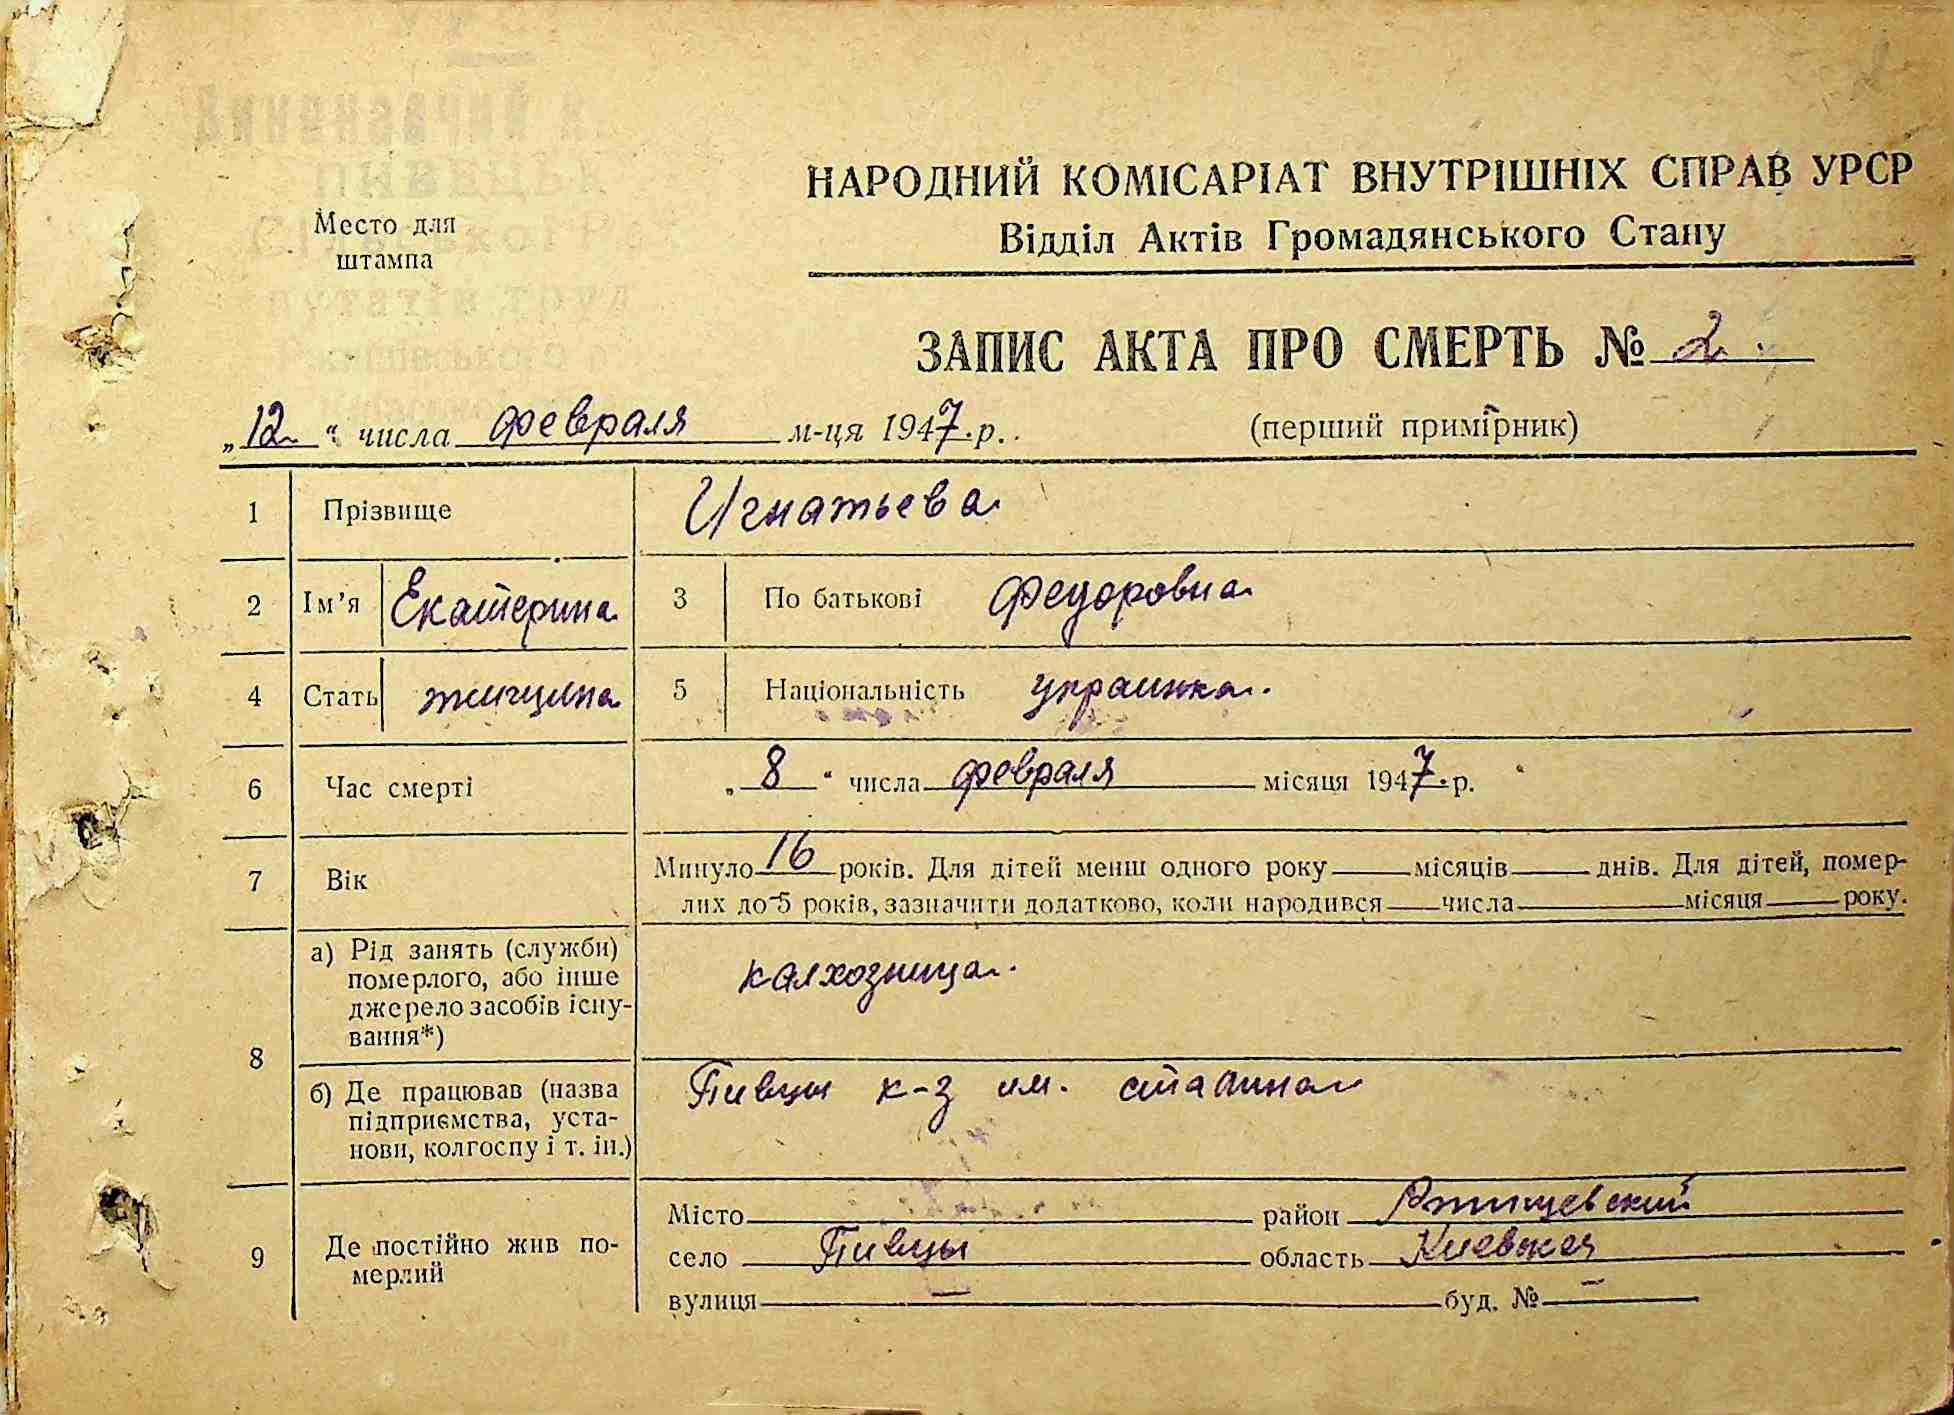 НАРОДНИЙ КОМІСАРІАТ ВНУТРІШНІХ СПРАВ УРСР
Відділ Актів Громадянського Стану
Место для
штампа
ЗАПИС АКТА ПРО СМЕРТЬ № 2.
„12“ числа февраля м-ця 1947.р. (перший примірник)
1 Прізвище Игнатьева
2 Ім'я Екатерина 3 По батькові Федоровна
4 Стать женщина 5 Національність украинка.
6 Час смерті „8“ числа февраля місяця 1947.р.
7 Вік Минуло 16 років. Для дітей менш одного року місяців днів. Для дітей, помер-
лих до 5 років, зазначити додатково, коли народився числа місяця року.
8 а) Рід занять (служби)
померлого, або інше
джерело засобів існу-
вання*) калхозница.
б) Де працював (назва
підприємства, уста-
нови, колгоспу і т. ін.) Пивцы к-з им. сталина
9 Де постійно жив по-
мерлий
Місто район Ржищевский
село Пивцы область Киевская
вулиця — буд. № —